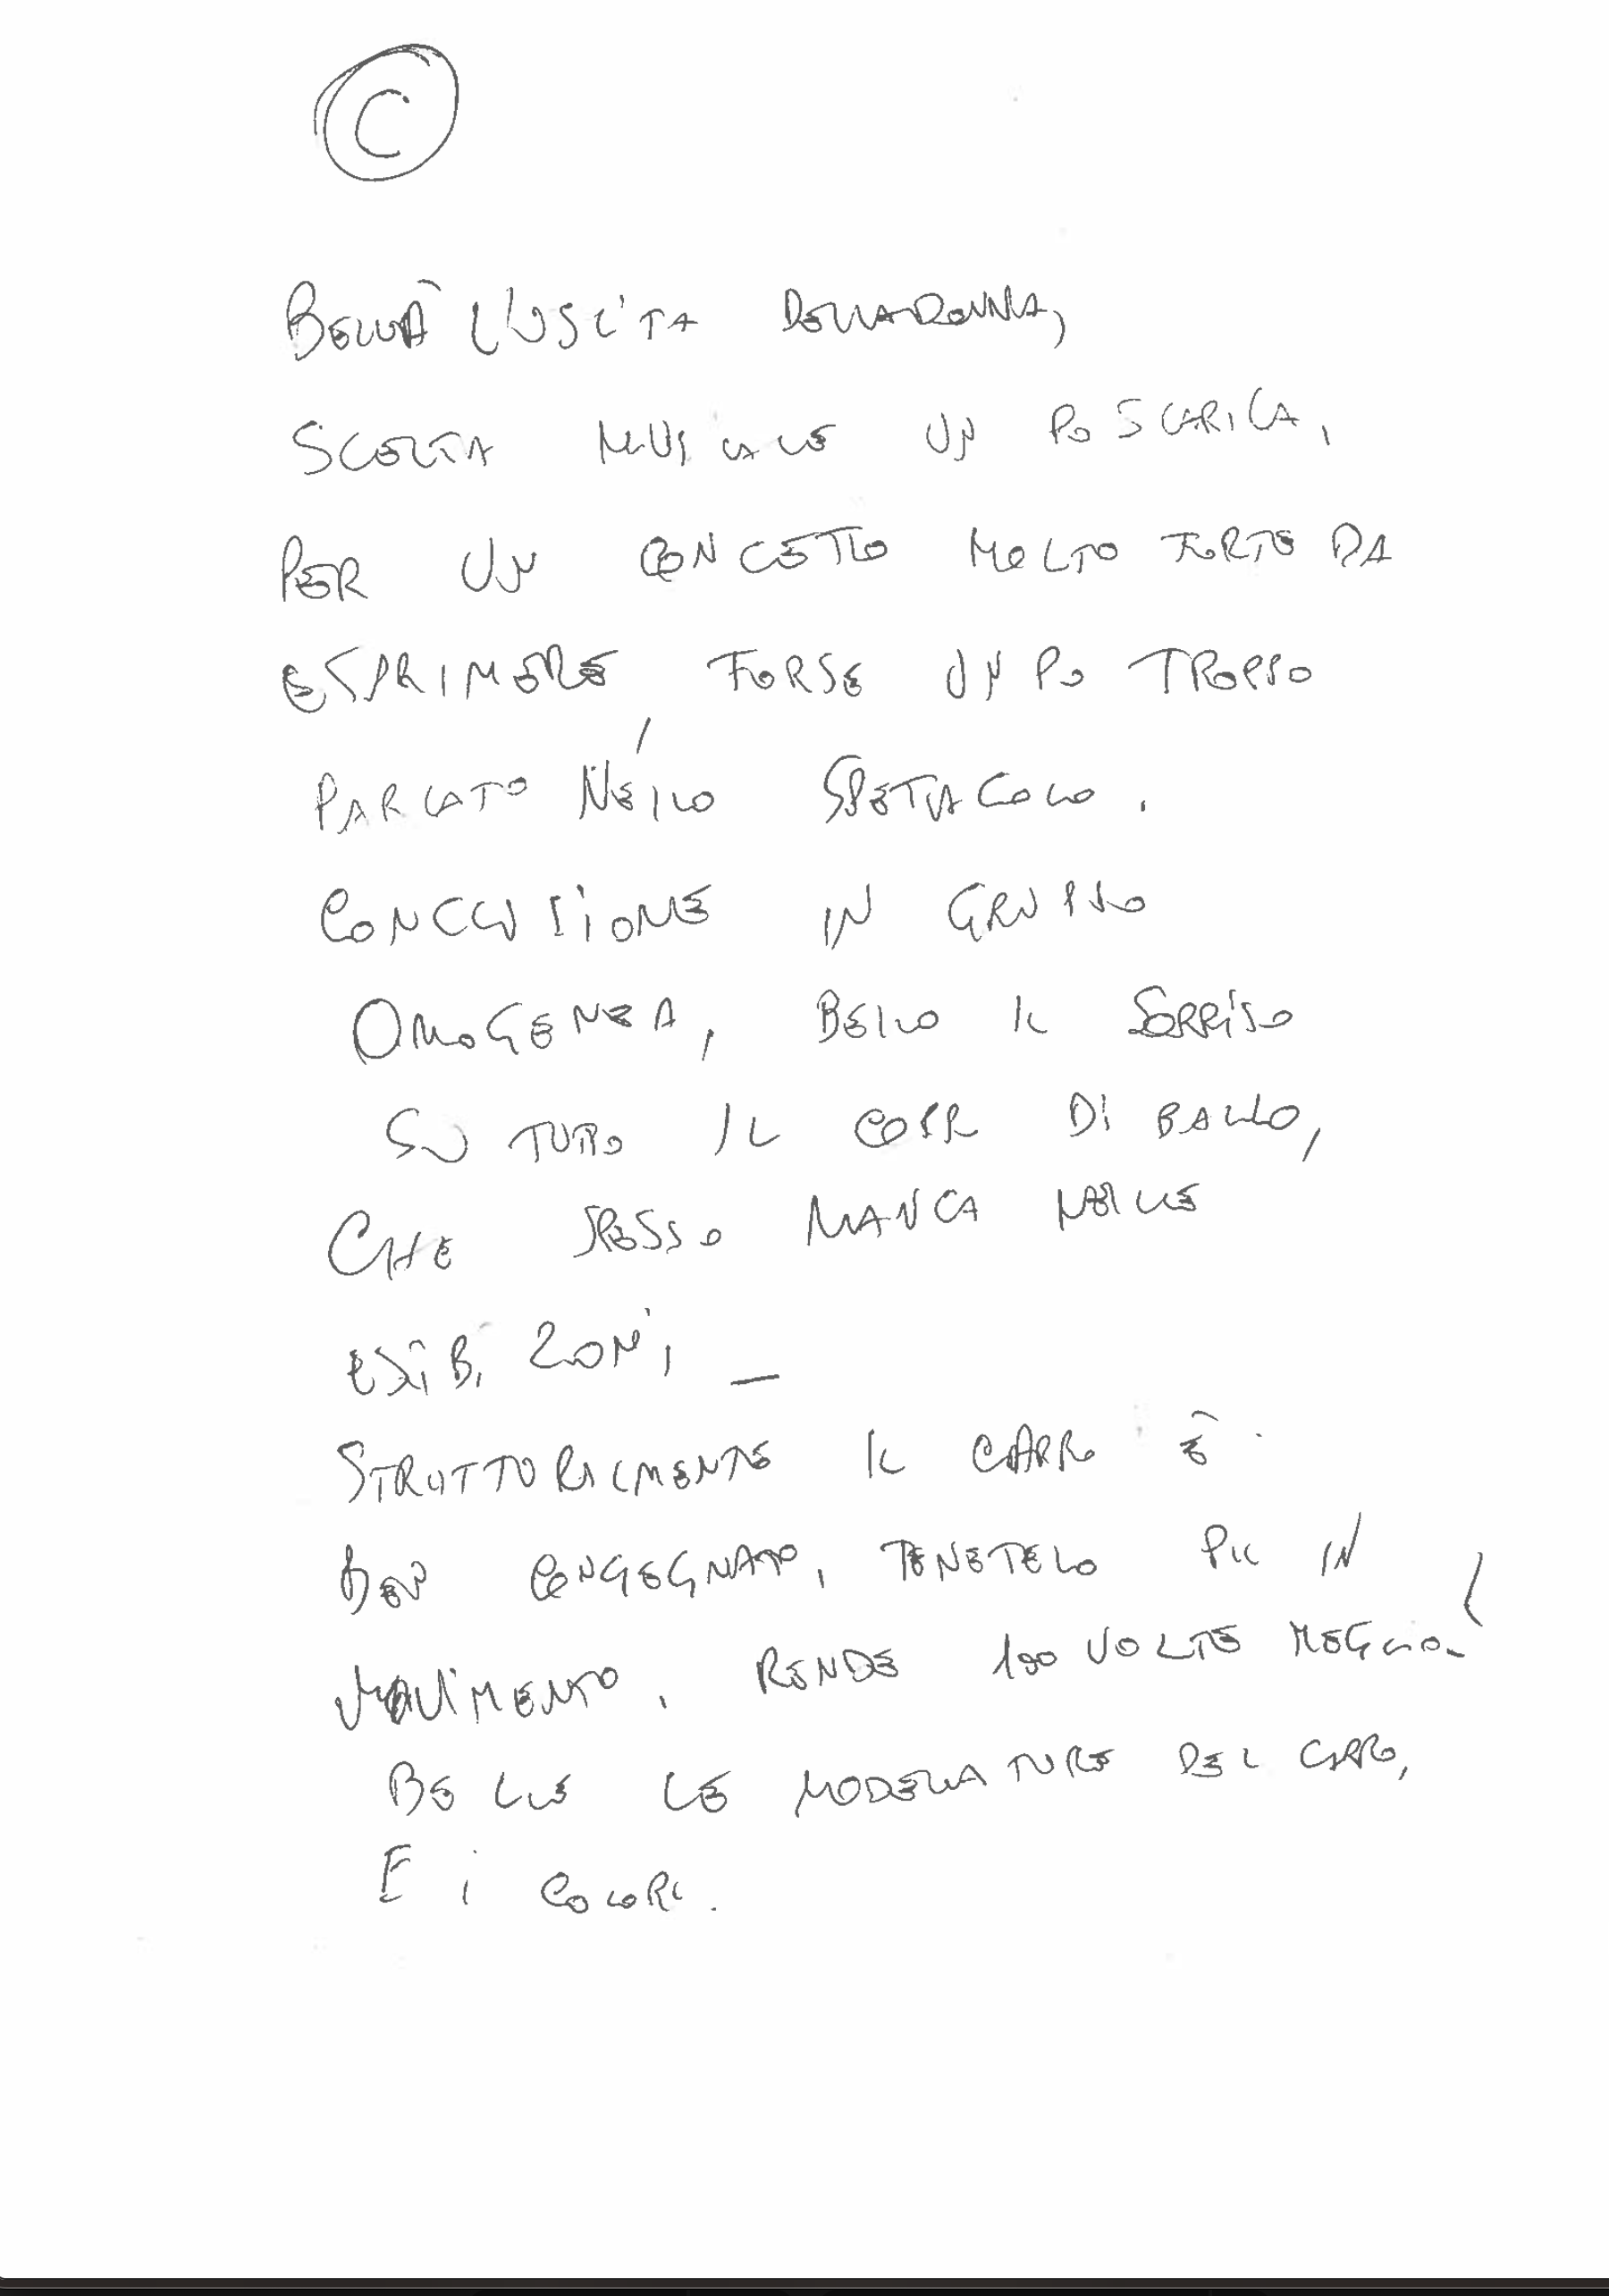 C
BELLA L'USCITA DELLA DONNA,
SCELTA MUSICALE UN PO SCARICA,
PER UN CONCETTO MOLTO FORTE DA
ESPRIMERE FORSE UN PO TROPPO
PARLATO NELLO SPETTACOLO.
CONCLUSIONE IN GRUPPO
OMOGENEA, BELLO IL SORRISO
SU TUTTO IL CORP DI BALLO,
CHE SPESSO MANCA NELLE
ESIBIZIONI, _
STRUTTURALMENTE IL CARRO È
BEN CONGEGNATO, TENETELO PIU IN
MOVIMENTO, RENDE 100 VOLTE MEGLIO!
BELLE LE MODELLATURE DEL CARRO,
E I COLORI.